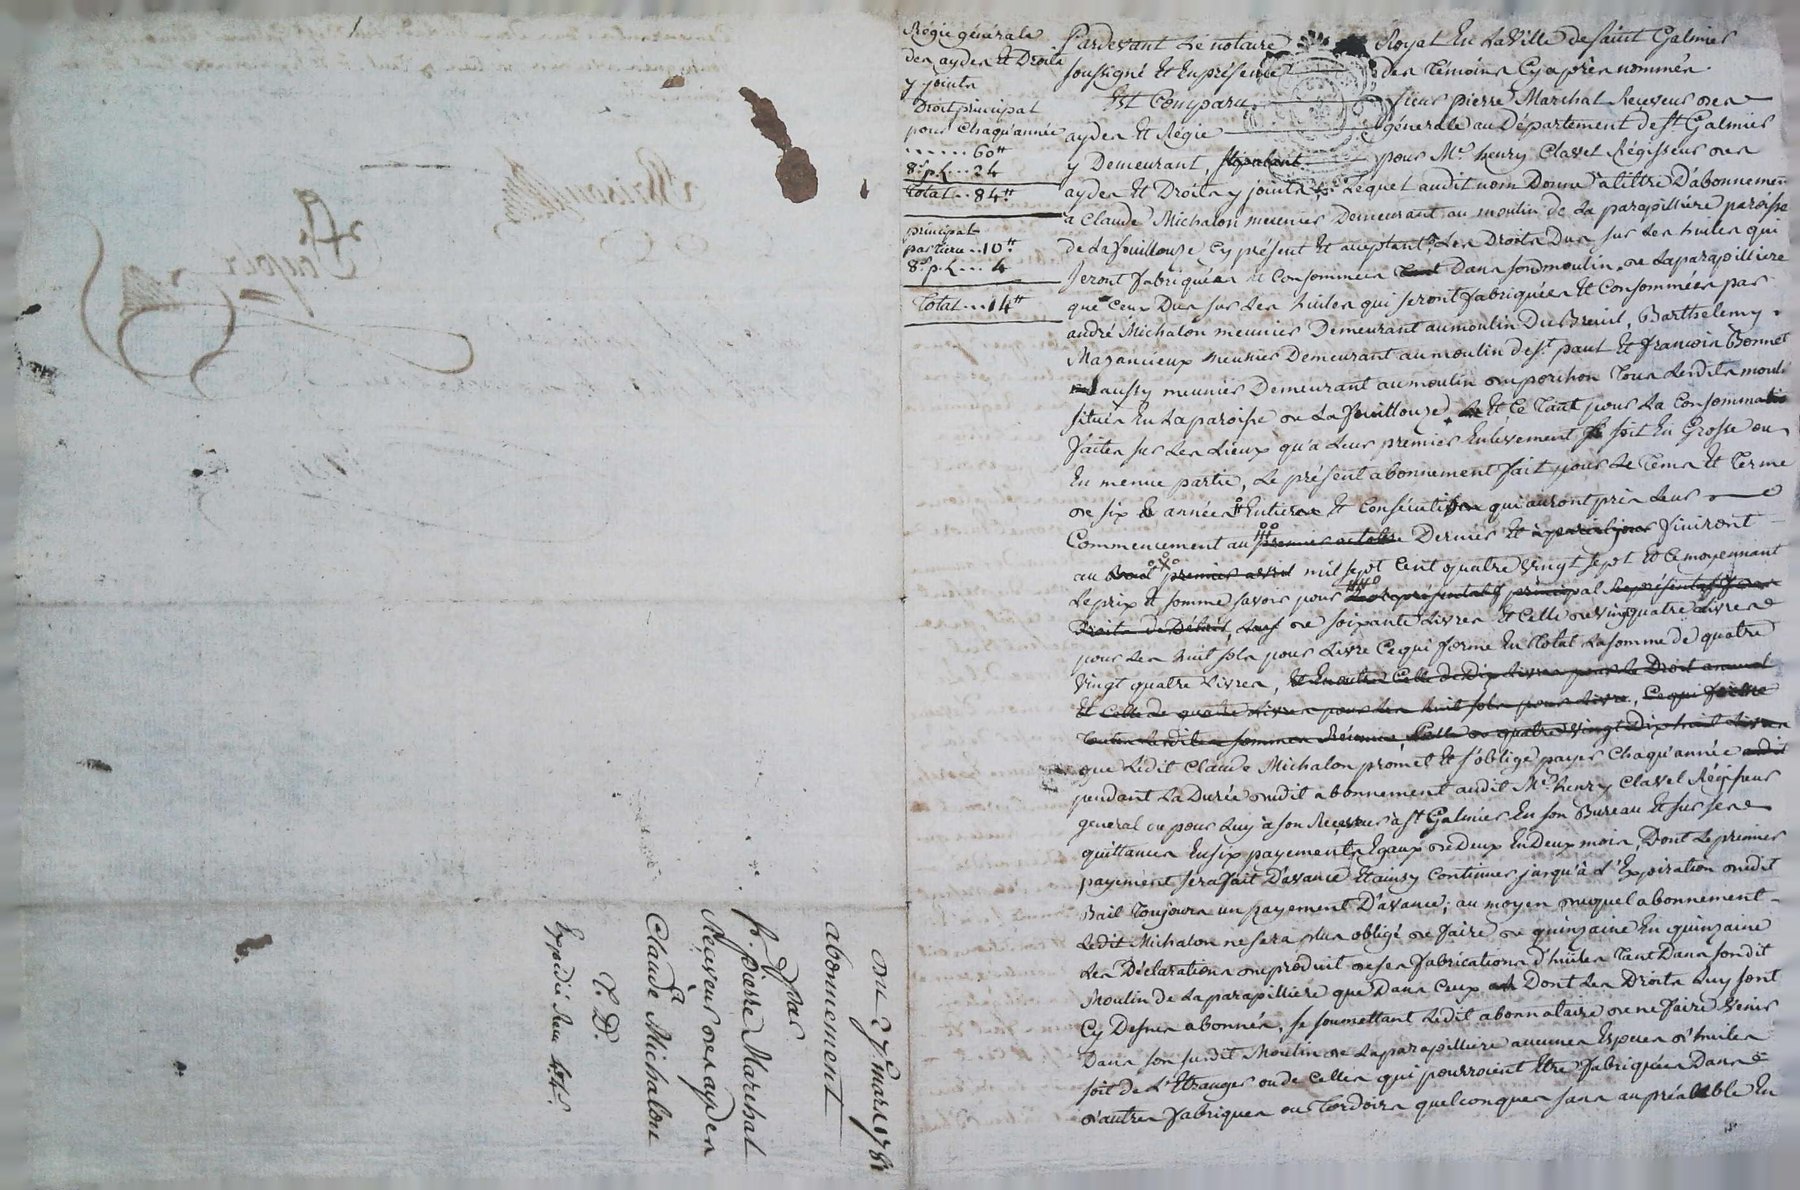 Régie générale
des aydes Et Droits
y joints
Droit principal
pour chaqu'année
...... 60 ₶
8 s. p. L. ... 24
Total .. 84 ₶
principal
partieu .. 10 ₶
8 s. p. L. ... 4
Total ... 14 ₶
Pardevant Le notaire Royal En La Ville de Saint Galmier
soussigné Et En présence des témoins Cy après nommés
Est Comparu sieur pierre Marchal Receveur des
aydes Et Régie générale au Département de St Galmier
y Demeurant pour Me henry Clavel Régisseur des
aydes Et Droits y joints, Lequel audit nom Donne a tittre D'abonnement
a Claude Michalon meunier Demeurant au moulin de La parapilliere paroisse
de La fouillouze Cy présent Et acceptant Les Droits Dus sur Les huiles qui
seront fabriquées et Consommées Dans son d moulin de La parapilliere
que Ceux Dus sur Les huiles qui seront fabriquées Et Consommées par
andré Michalon meunier Demeurant au moulin Du Breuil, Barthelemy
Mazancieux meunier Demeurant au moulin de St paul Et francois Bonnet
aussy meunier Demeurant au moulin du porchon Tous Lesdits moulins
situés En La paroisse de La fouillouze, Et Ce Tant pour La Consommation
faites sur Les Lieux qu'a Leur premier Enlevement soit En Grosse ou
En menue partie, Le présent abonnement fait pour Le Tems Et Terme
de six années Entieres Et Consécutives qui auront pris Leur
Commencement au premier octobre Dernier Et a pareil jour finiront
au premier avril mil sept Cent quatre vingt sept Et Ce moyennant
Le prix Et somme savoir pour principal Représentatif des
Droits de Détail, de soixante Livres Et Celle de vingt quatre Livres
pour Les huit sols pour Livre Ce qui forme En Total La somme de quatre
vingt quatre Livres, Et En outre Celle de Dix Livres pour le Droit annuel
Et Celle de quatre Livres pour Les huit sols pour Livre, Ce qui fait
Toutes Lesdites sommes Réunies, Celle de quatre vingt Dix huit Livres
que Ledit Claude Michalon promet Et s'oblige payer Chaqu'année
pendant La Durée dudit abonnement audit Me henry Clavel Régisseur
general ou pour Luy a son Receveur a St Galmier En son Bureau Et sur ses
quittances En six payements Egaux de Deux En Deux mois, Dont Le premier
payement sera fait D'avance Et ainsy Continuer jusqu'à L'Expiration dudit
Bail Toujours un payement D'avance; au moyen duquel abonnement
Ledit Michalon ne sera plus obligé de faire de quinzaine En quinzaine
Les Déclarations du produit de ses fabrications d'huiles Tant Dans sondit
Moulin de La parapilliere que Dans Ceux Dont Les Droits Luy sont
Cy Dessus abonnés, se soumettant Ledit abonnataire de ne faire Venir
Dans son susdit Moulin de La parapilliere aucunes Especes d'huiles
soit de L'Etranger ou de Celles qui pourroient Etre fabriquées Dans
d'autres fabriques ou Tordoirs quelconques sans au préalable En
Du 27e mars 1781
abonnement
par
Sr. pierre Marchal
Receveur des aydes
a
Claude Michalon
C. D.
Expédié